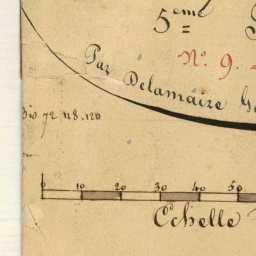 5.eme
N.o 9.
Par Delamaire Gé
72 118.120
0 10 20 30 40 50
Echelle